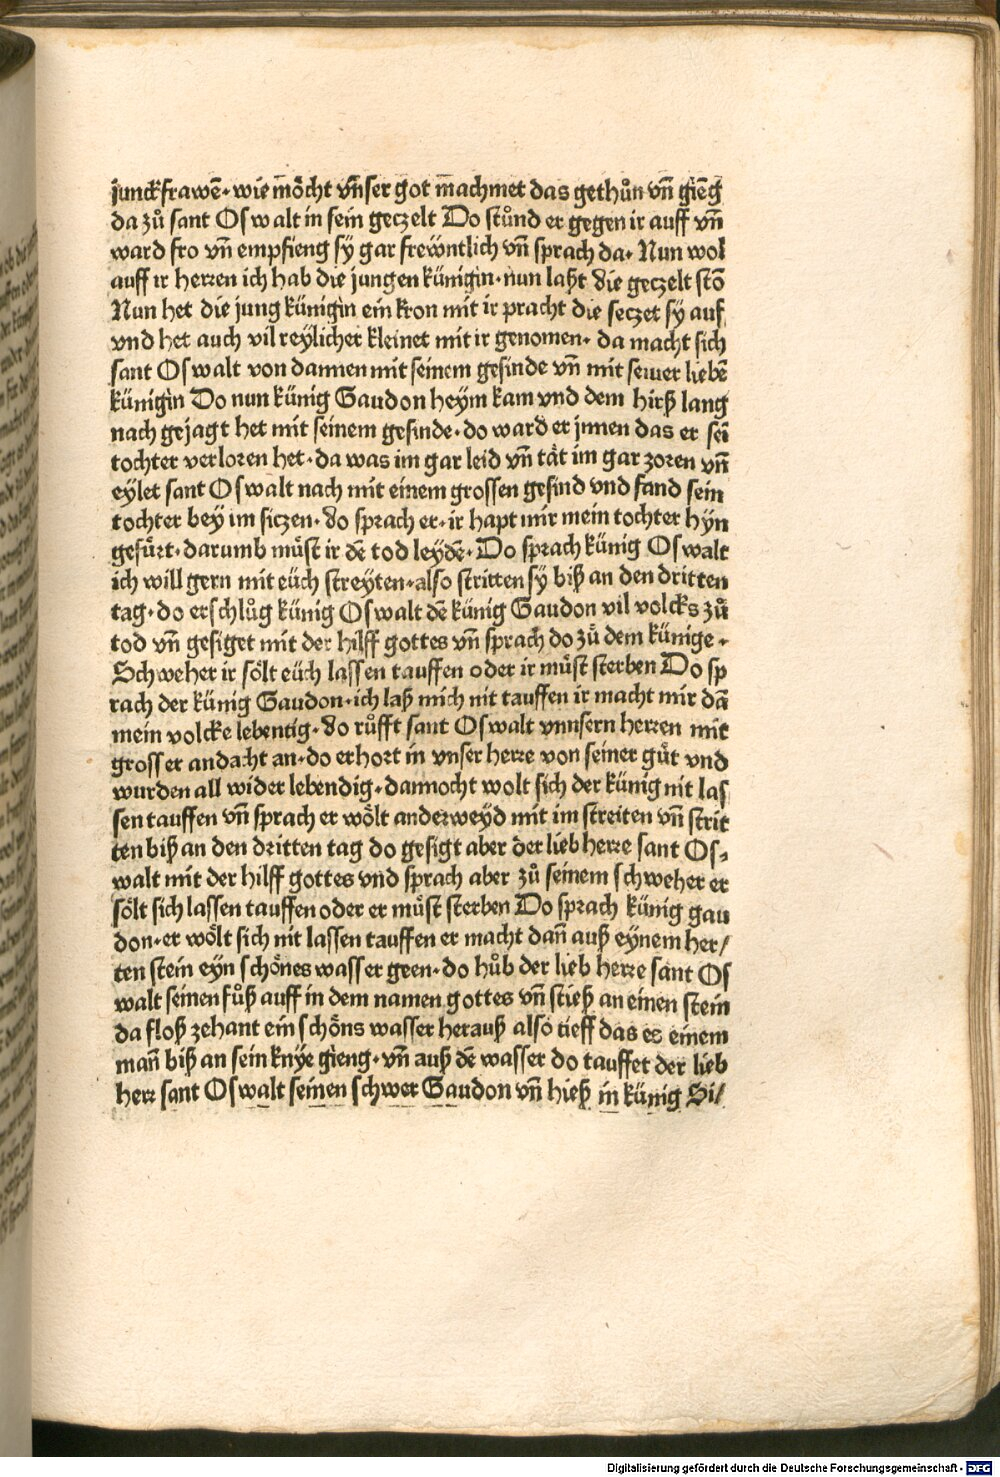 junckfrawē· wie mȯcht vn̄ser got machmet das gethůn vn̄ gieng
da zů sant Oswalt in sein geczelt Do stůnd er gegen ir auff vn̄
ward fro vn̄ empfieng sy gar frewntlich vn̄ sprach da· Nun wol
auff ir herren ich hab die jungen künigin· nun laßt die geczelt stō
Nun het die jung künigin ein kron mit ir pracht die seczet sy auf
vnd het auch vil reylicher kleinet mit ir genomen· da macht sich
sant Oswalt von dannen mit seinem gesinde vn̄ mit seiner liebē
künigin Do nun künig Gaudon heym kam vnd dem hirß lang
nach gejagt het mit seinem gesinde· do ward er jnnen das er sei
tochter verloren het· da was im gar leid vn̄ tät im gar zoren vn̄
eylet sant Oswalt nach mit einem grossen gesind vnd fand sein
tochter bey im siczen· do sprach er· ir hapt mir mein tochter hyn
gefürt· darumb müst ir dē tod leydē· Do sprach künig Oswalt
ich will gern mit eüch streyten· also stritten sy biß an den dritten
tag· do erschlůg künig Oswalt dē künig Gaudon vil volcks zů
tod vn̄ gesiget mit der hilff gottes vn̄ sprach do zů dem künige·
Schweher ir sölt eüch lassen tauffen oder ir müst sterben Do sp
rach der künig Gaudon· ich laß mich nit tauffen ir macht mir dā
mein volcke lebentig· do růfft sant Oswalt vnnsern herren mit
grosser andacht an· do erhort in vnser herre von seiner güt vnd
wurden all wider lebendig· dannocht wolt sich der künig nit las
sen tauffen vn̄ sprach er wölt anderweyd mit im streiten vn̄ strit
ten biß an den dritten tag do gesigt aber der lieb herre sant Os⸗
walt mit der hilff gottes vnd sprach aber zů seinem schweher er
sölt sich lassen tauffen oder er müst sterben Do sprach künig gau
don· er wölt sich nit lassen tauffen er macht dan̄ auß eynem her/
ten stein eyn schönes wasser geen· do hůb der lieb herre sant Os
walt seinen fůß auff in dem namen gottes vn̄ stieß an einen stein
da floß zehant ein schöns wasser herauß also tieff das es einem
man̄ biß an sein knye gieng· vn̄ auß dē wasser do tauffet der lieb
herr sant Oswalt seinen schwer Gaudon vn̄ hieß in künig Si/
Digitalisierung gefördert durch die Deutsche Forschungsgemeinschaft - DFG